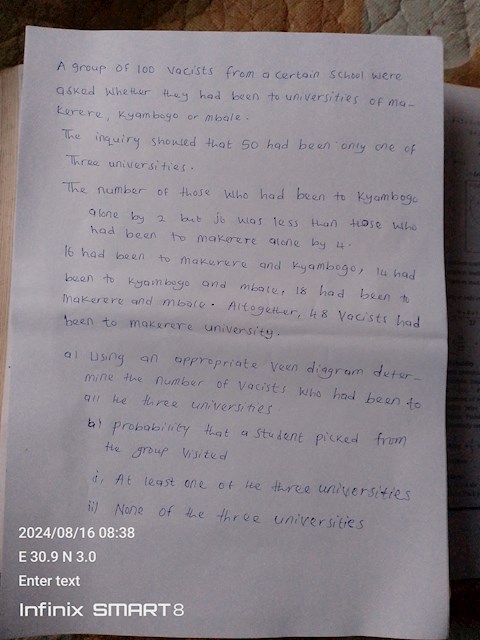 A group of 100 vacists from a certain school were
asked whether they had been to universities of ma-
kerere, kyambogo or mbale.
The inquiry showed that 50 had been only one of
Three universities.
The number of those who had been to kyambogo
alone by 2 but it was less than those who
had been to makerere alone by 4.
16 had been to makerere and kyambogo, 14 had
been to kyambogo and mbale, 18 had been to
makerere and mbale. Altogether, 48 vacists had
been to makerere university.
a) Using an appropriate veen diagram deter-
mine the number of vacists who had been to
all the three universities
b) probability that a student picked from
the group visited
i, At least one of the three universities
ii) None of the three universities
2024/08/16 08:38
E 30.9 N 3.0
Enter text
Infinix SMART 8